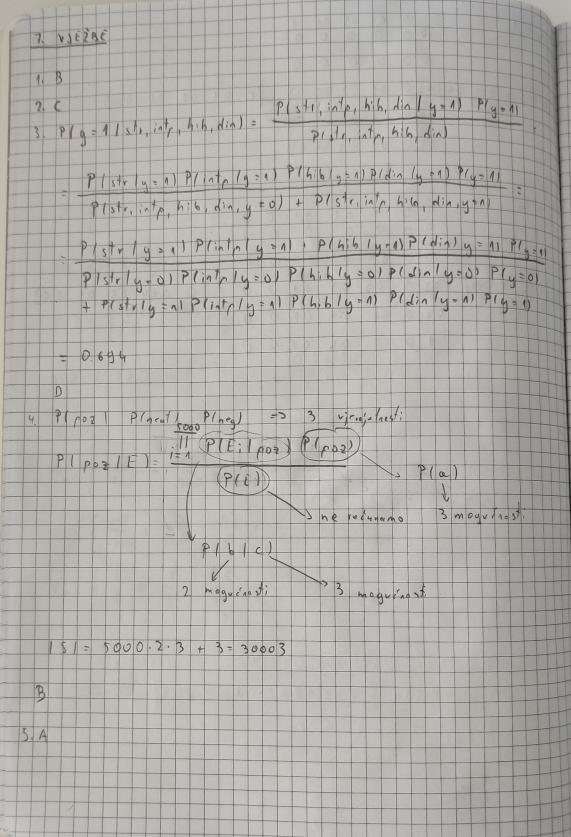 7. VJEŽBE
1. B
2. C
3. P(y=1 | str, intp, hib, din) = P(str, intp, hib, din | y=1) P(y=1) / P(str, intp, hib, din) =
= P(str|y=1) P(intp|y=1) P(hib|y=1) P(din|y=1) P(y=1) / P(str, intp, hib, din, y=0) + P(str, intp, hib, din, y=1) =
= P(str|y=1) P(intp|y=1) · P(hib|y=1) P(din|y=1) P(y=1) /
P(str|y=0) P(intp|y=0) P(hib|y=0) P(din|y=0) P(y=0)
+ P(str|y=1) P(intp|y=1) P(hib|y=1) P(din|y=1) P(y=1)
= 0.694
D
4. P(poz) P(neut) P(neg) => 3 vjerojatnosti
P(poz|E) = 5000 ∏ i=1 P(Ei|poz) P(poz) / P(E)
P(a)
ne računamo 3 mogućnosti
P(b|c)
2 mogućnosti 3 mogućnosti
|S| = 5000·2·3 + 3 = 30003
B
5. A